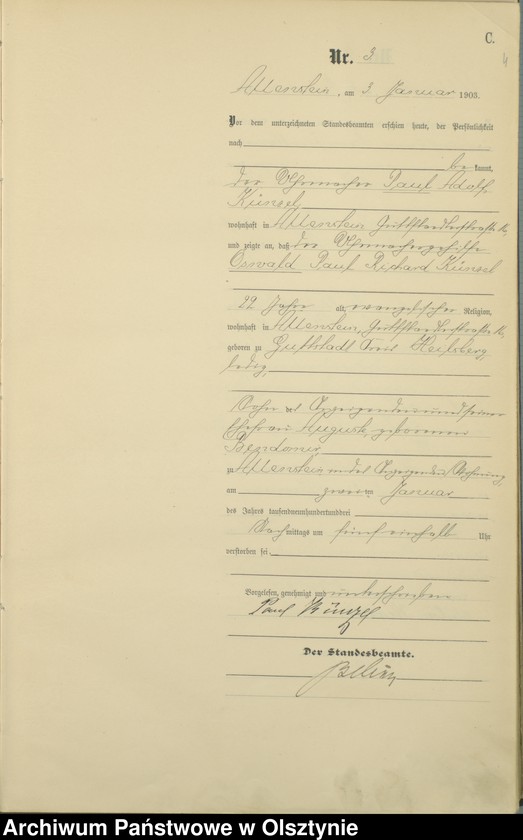 C.
4
Nr. 3
Allenstein, am 3. Januar 1903.
Vor dem unterzeichneten Standesbeamten erschien heute, der Persönlichkeit
nach
be kannt,
der Uhrmacher Paul Adolf
Künzel
wohnhaft in Allenstein, Guttstädterstraße
und zeigte an, daß der Uhrmachergehilfe
Oswald Paul Richard Künzel
22 Jahre alt, evangelischer Religion,
wohnhaft in Allenstein, Guttstädterstraße
geboren zu Guttstadt Kreis Heilsberg,
ledig,
Sohn des Anzeigenden und seiner
Ehefrau Auguste, geborenen
zu Allenstein in des Anzeigenden Wohnung
am zweiten Januar
des Jahres tausendneunhundertunddrei
Nachmittags um fünf einhalb Uhr
verstorben sei.
Vorgelesen, genehmigt und unterschrieben
Paul Künzel
Der Standesbeamte.
Archiwum Państwowe w Olsztynie